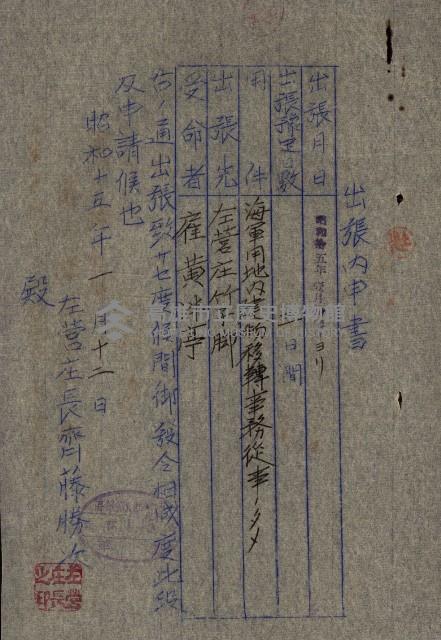 出張內申書
出張月日
昭和拾五年壹月 ヨリ
出張豫定日數
一日間
用件
海軍用地內建物移轉事務從事ノタメ
出張先
左營庄竹子脚
受命者
雇 黃 亭
右ノ通出張致サセ度候間御發令相成度此段
及申請候也
昭和十五年一月十二日
左營庄長齊藤勝次
殿
左營庄長之印
高雄市立歷史博物館